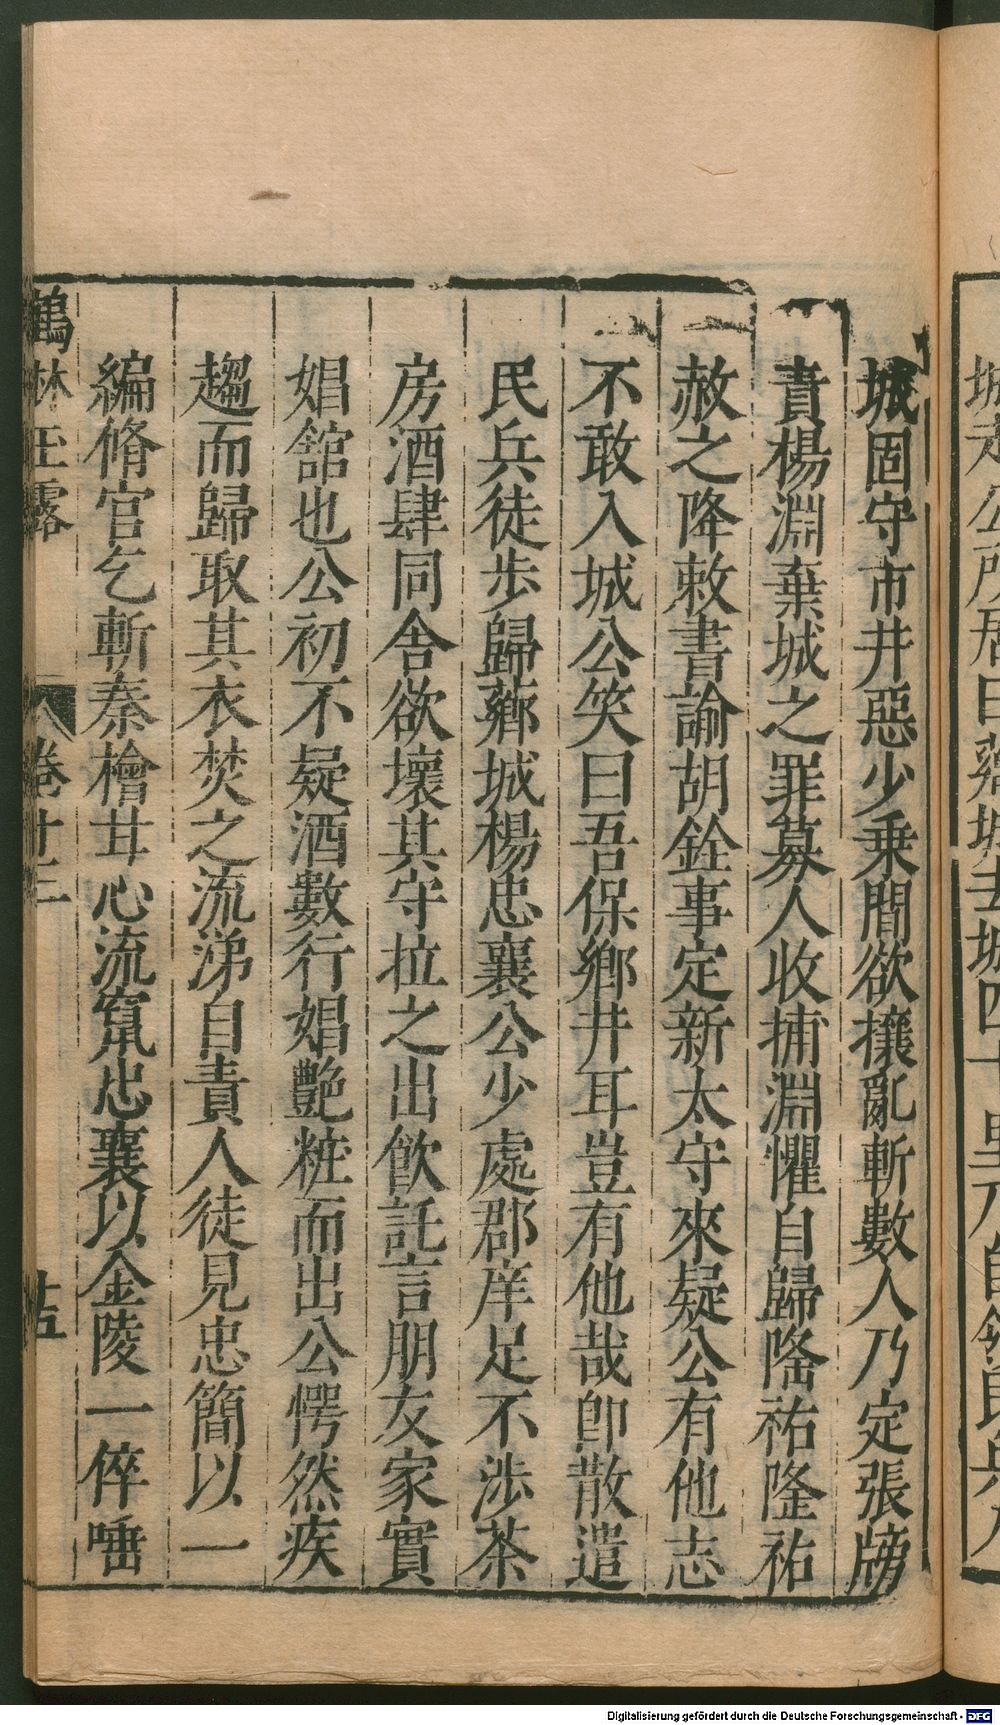 城固守市井惡少乗間欲攘亂斬數人乃定張牓
責楊淵棄城之罪募人收捕淵懼自歸隆祐隆祐
赦之降敕書諭胡銓事定新太守來疑公有他志
不敢入城公笑曰吾保鄉井耳豈有他哉卽散遣
民兵徒步歸薌城楊忠襄公少處郡庠足不涉茶
房酒肆同舎欲壞其守拉之出飮託言朋友家實
娼舘也公初不疑酒數行娼艶粧而出公愕然疾
趨而歸取其衣焚之流涕自責人徒見忠簡以一
編脩官乞斬秦檜甘心流竄忠襄以金陵一倅唾
鶴林玉露 卷十三 十五
Digitalisierung gefördert durch die Deutsche Forschungsgemeinschaft - DFG